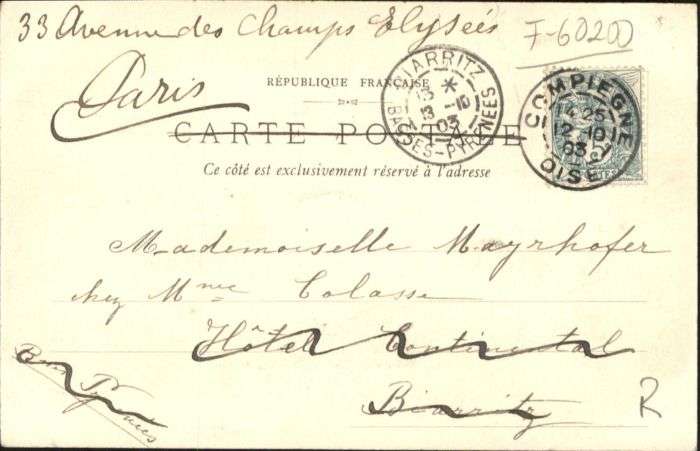 33 Avenue des Champs Elysées
F-60200
Paris
RÉPUBLIQUE FRANÇAISE
CARTE POSTALE
Ce côté est exclusivement réservé à l'adresse
BIARRITZ
13 -10
03
BASSES-PYRENEES
COMPIEGNE
4 25
12 -10
03
OISE
Mademoiselle Mayrhofer
chez Mme Colasse
Hôtel Continental
Biarritz
Basses Pyrénées
R